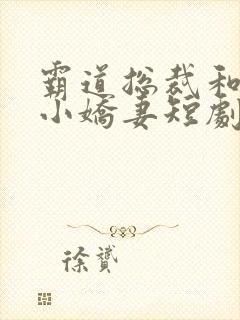 霸道总裁和
小嬌妻短劇
徐贇